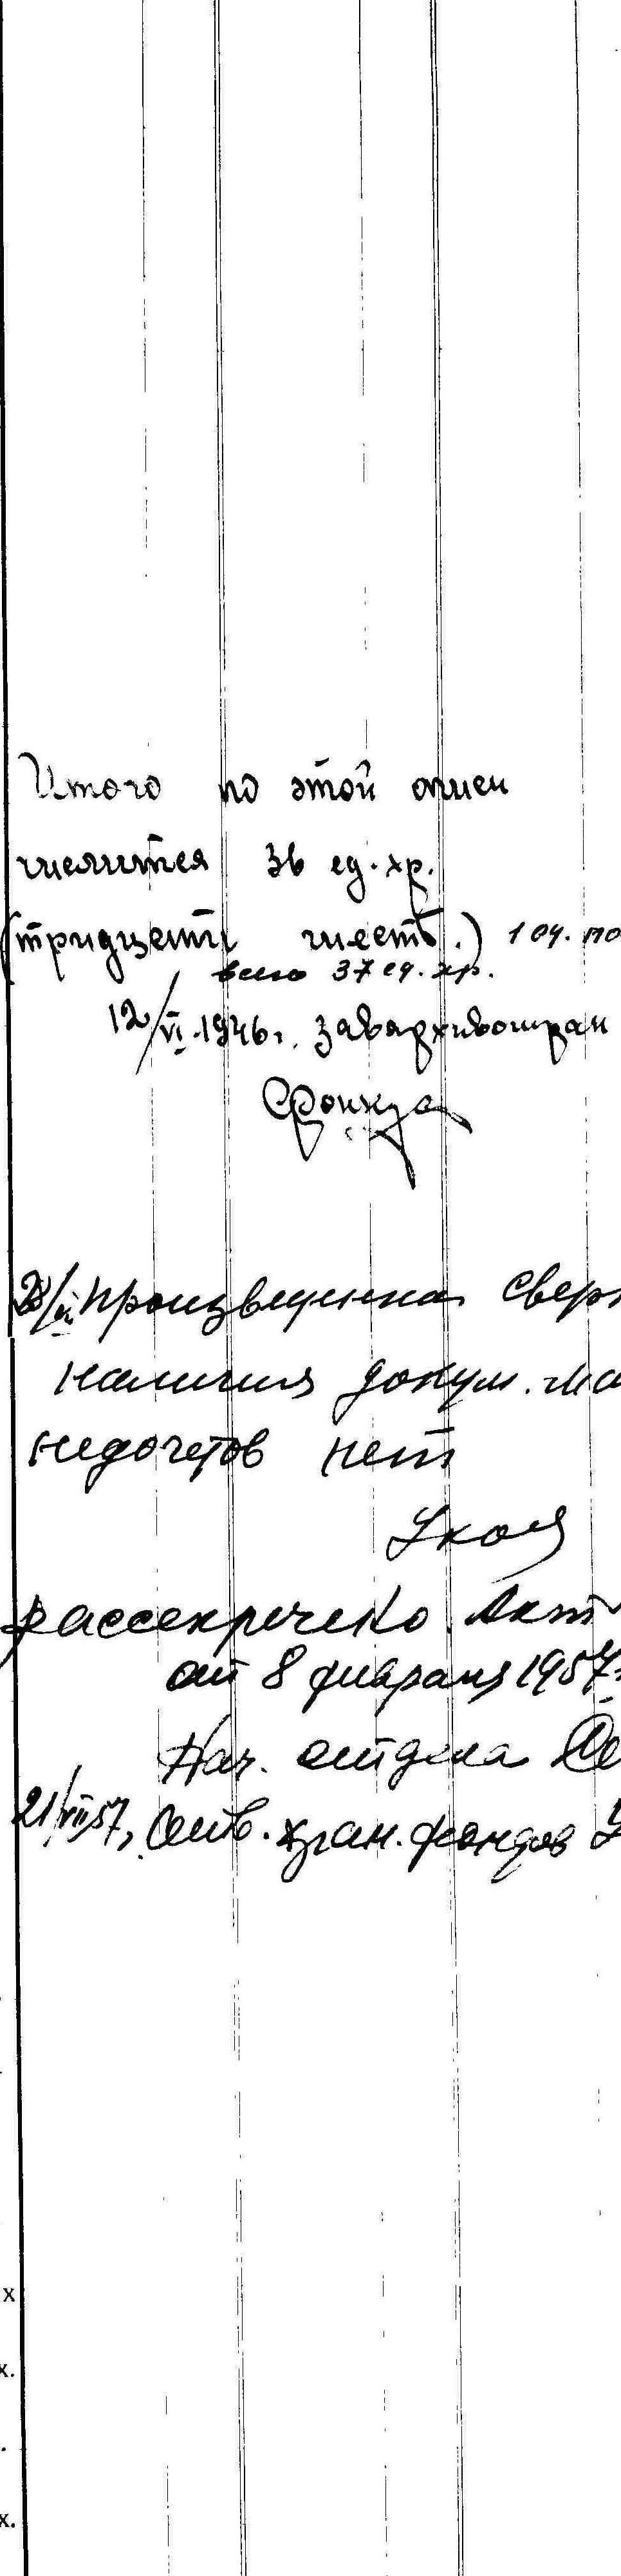 Итого по этой описи
числится 36 ед. хр.
(тридцать шесть.) 1 ед. по
всего 37 ед. хр.
12/VI.1946г. Завархивохран
произведенна сверк
наличия докум. ма
недочетов нет
рассекречено Акт
от 8 февраля 1957г
Нач. отдела
21/VII57, Отв. хран. фондов
х
х.
.
х.